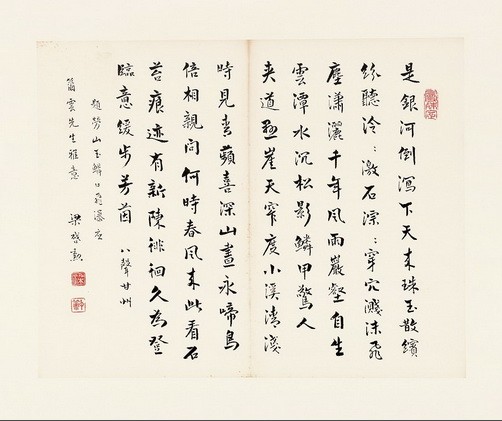 是銀河倒瀉下天来珠玉散繽
紛聽泠〻激石淙〻穿穴濺沫飛
塵瀟灑千年風雨巖壑自生
雲潭水沉松影鱗甲驚人
夾道懸崖天窄度小溪清淺
時見青蘋喜深山晝永啼鳥
倍相親問何時春風来此看石
苔痕迹有新陳徘徊久為登
臨意緩步芳茵 八聲甘州
題勞山玉鱗口飛瀑應
雲先生雅意 梁啓勳